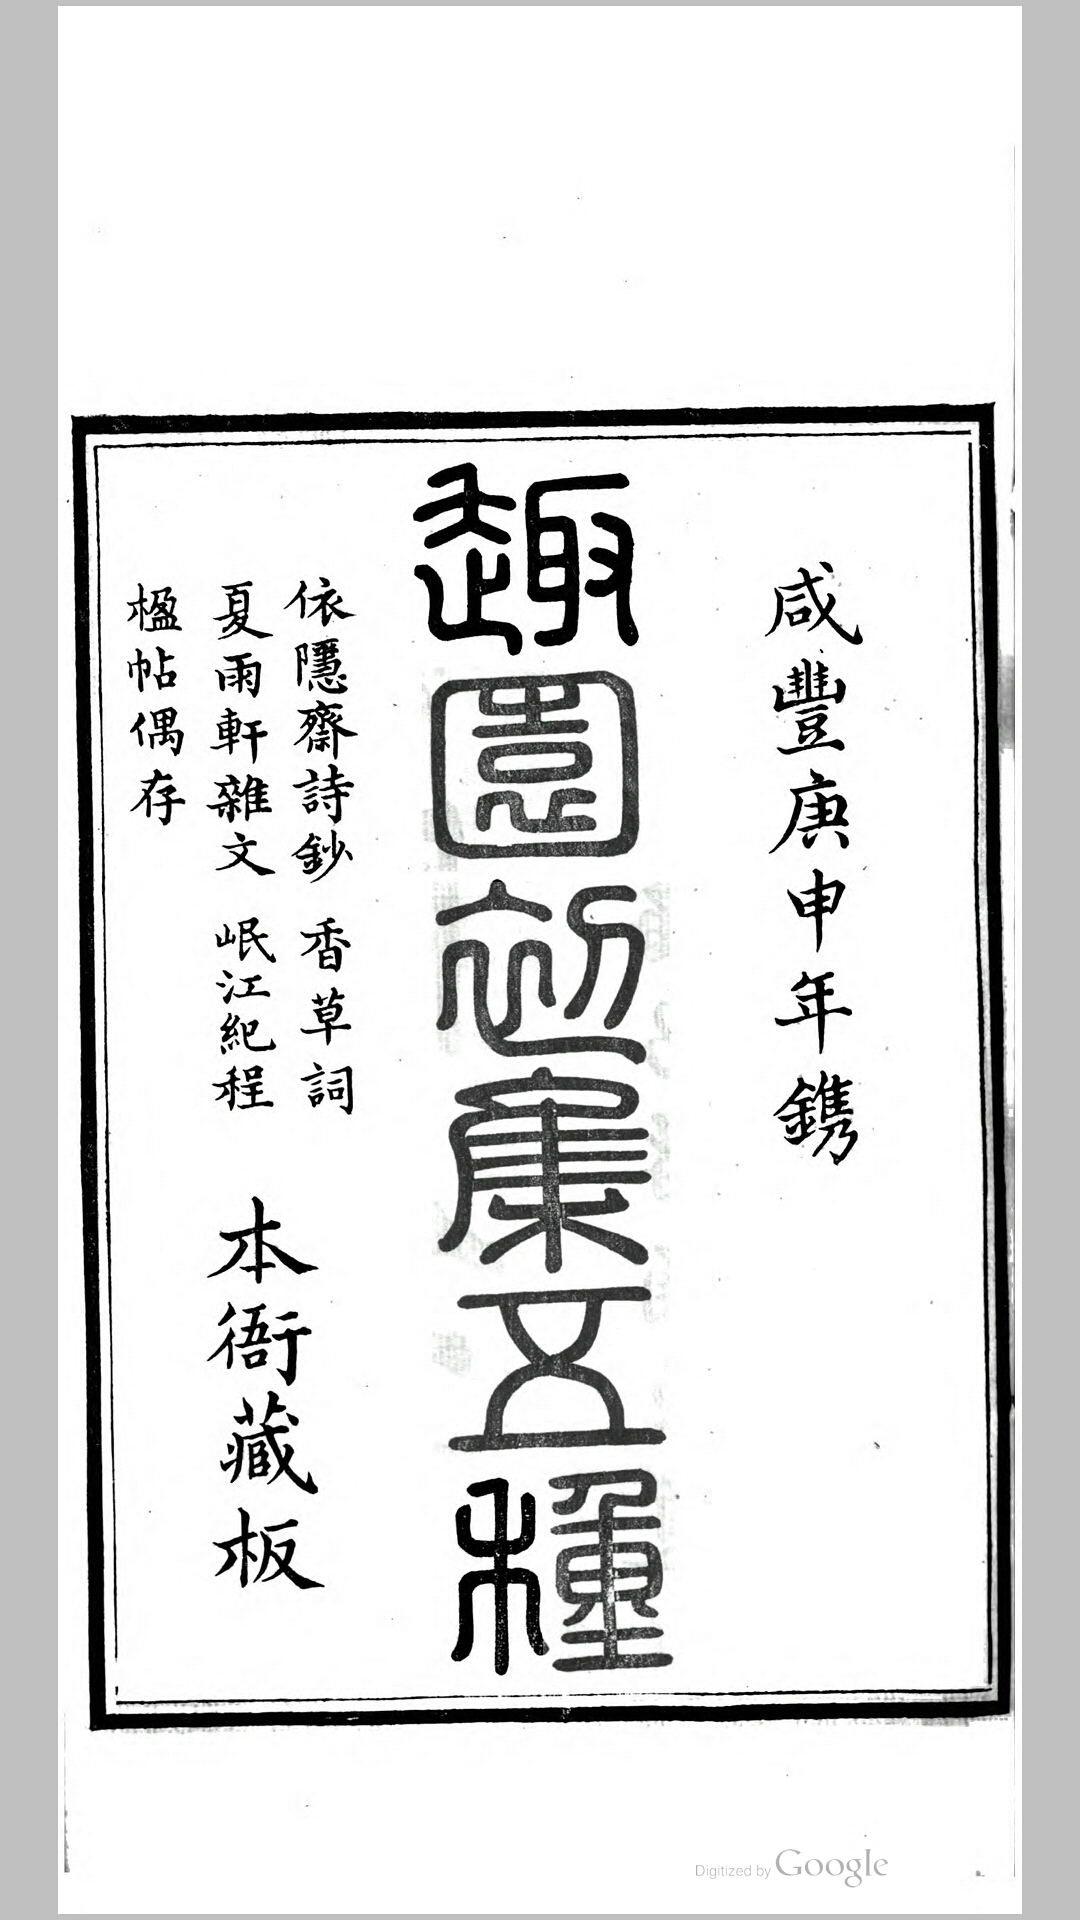 咸豐庚申年鐫
趣園初集五種
依隱齋詩鈔 香草詞
夏雨軒雜文 岷江紀程
楹帖偶存
本衙藏板
Digitized by Google